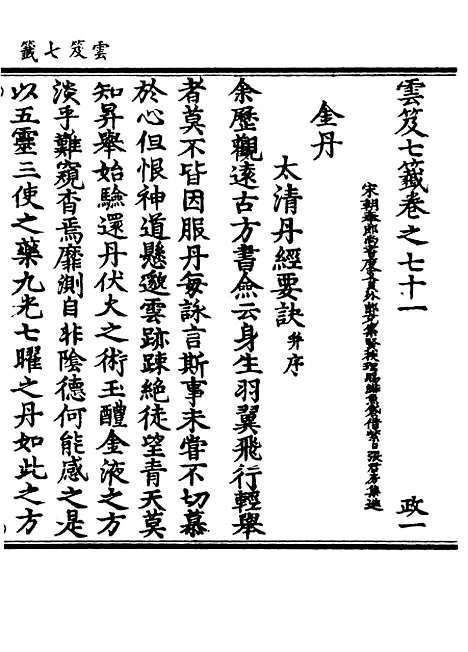 雲笈七籤
雲笈七籤卷之七十一 政一
宋朝奉郎尚書度支員外郎充集賢校理賜緋魚袋借紫臣張君房集進
金丹
太清丹經要訣并序
余歷觀遠古方書僉云身生羽翼飛行輕舉
者莫不皆因服丹每詠言斯事未嘗不切慕
於心但恨神道懸邈雲跡踈絕徒望青天莫
知昇舉始驗還丹伏火之術玉醴金液之方
淡乎難窺杳焉靡測自非陰德何能感之是
以五靈三使之藥九光七曜之丹如此之方